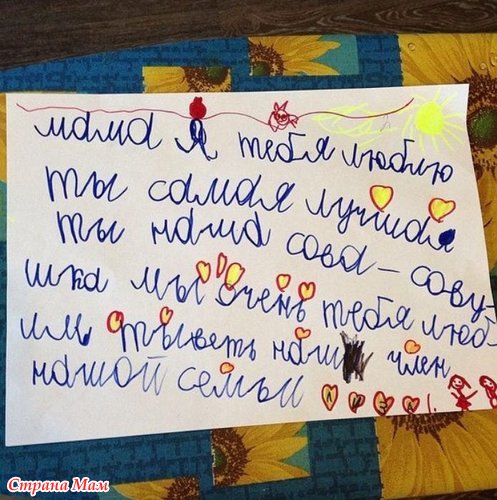 мама я тебя люблю
ты самая лучшая
ты наша сова - сову-
шка мы очень тебя люб-
им ты веть наш член
нашой семьи
Страна Мам